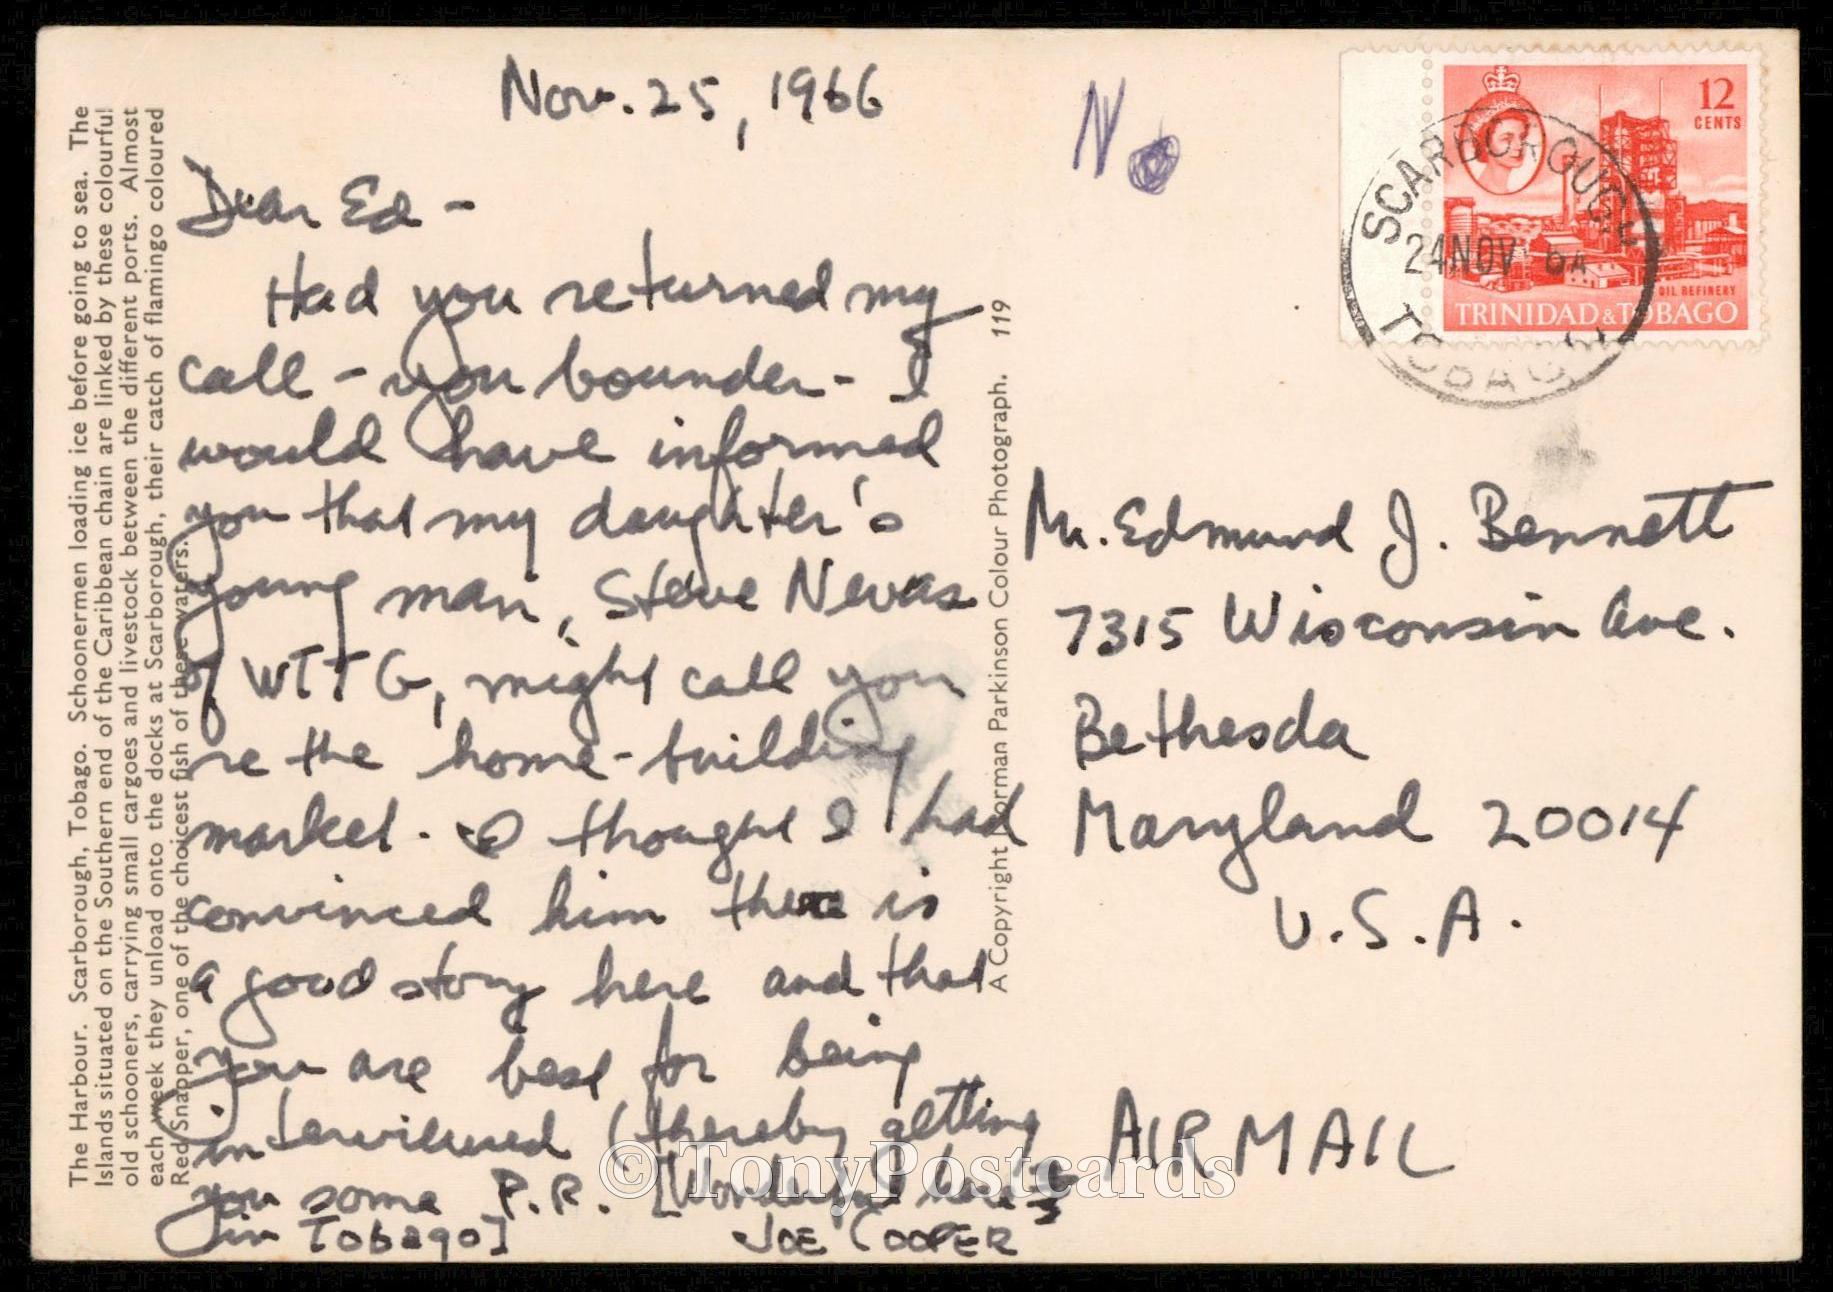 The Harbour. Scarborough, Tobago. Schoonermen loading ice before going to sea. The
Islands situated on the Southern end of the Caribbean chain are linked by these colourful
old schooners, carrying small cargoes and livestock between the different ports. Almost
each week they unload onto the docks at Scarborough, their catch of flamingo coloured
Red Snapper, one of the choicest fish of these waters.
Nov. 25, 1966
Dear Ed -
Had you returned my
call - you bounder - I
would have informed
you that my daughter's
young man, Steve Nevas
of WTTG, might call you
re the home-building
market. I thought I had
convinced him there is
a good story here and that
you are best for being
interviewed (thereby getting
you some P.R. [Wonderful here
in Tobago]
JOE COOPER
A Copyright Norman Parkinson Colour Photograph. 119
No
12
CENTS
OIL REFINERY
TRINIDAD & TOBAGO
SCARBOROUGH
24 NOV 6
TOBAGO
Mr. Edmund J. Bennett
7315 Wisconsin Ave.
Bethesda
Maryland 20014
U.S.A.
AIR MAIL
© TonyPostcards